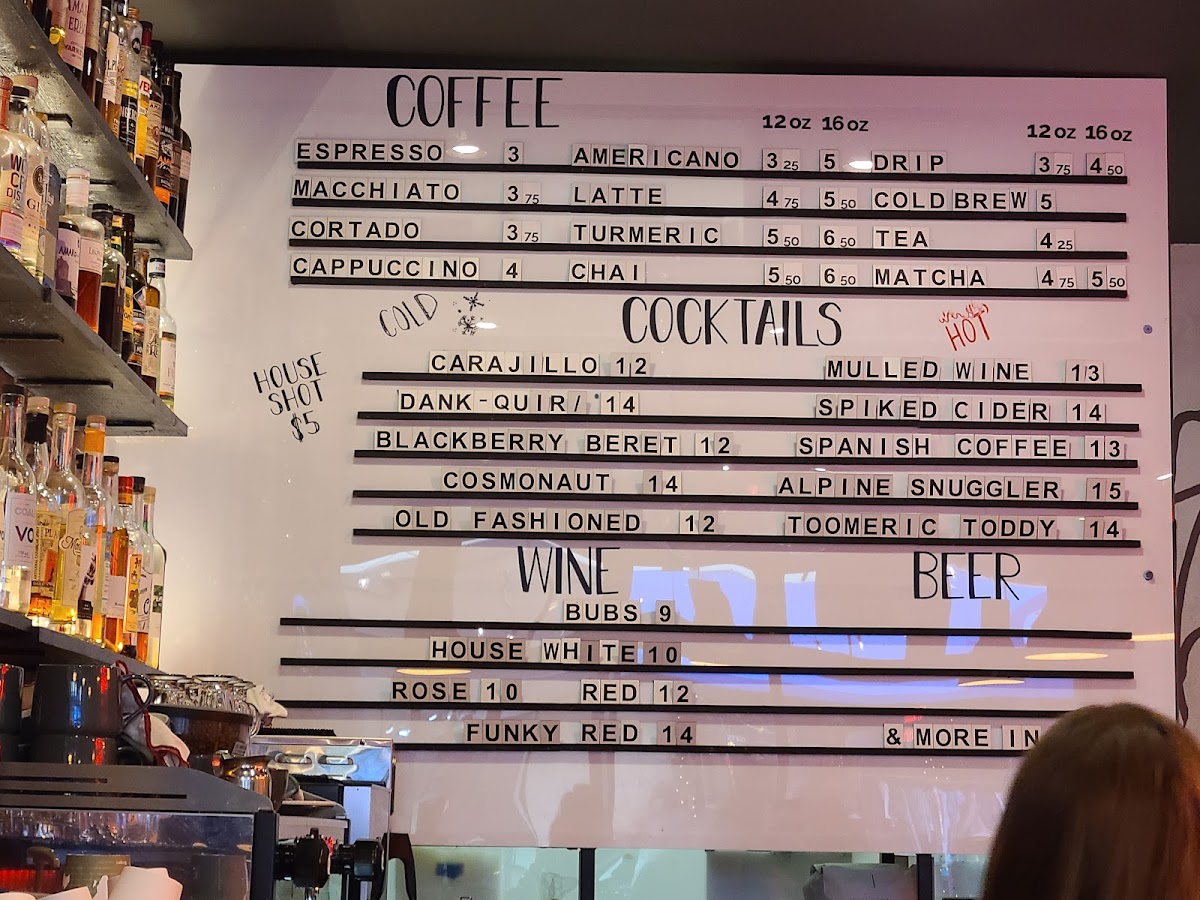 COFFEE
12oz 16oz 12oz 16oz
ESPRESSO 3 AMERICANO 3 25 5 DRIP 3 75 4 50
MACCHIATO 3 75 LATTE 4 75 5 50 COLD BREW 5
CORTADO 3 75 TURMERIC 5 50 6 50 TEA 4 25
CAPPUCCINO 4 CHAI 5 50 6 50 MATCHA 4 75 5 50
COLD COCKTAILS HOT
HOUSE
SHOT
$5
CARAJILLO 12 MULLED WINE 13
DANK-QUIR/ 14 SPIKED CIDER 14
BLACKBERRY BERET 12 SPANISH COFFEE 13
COSMONAUT 14 ALPINE SNUGGLER 15
OLD FASHIONED 12 TOOMERIC TODDY 14
WINE BEER
BUBS 9
HOUSE WHITE 10
ROSE 10 RED 12
FUNKY RED 14 & MORE IN